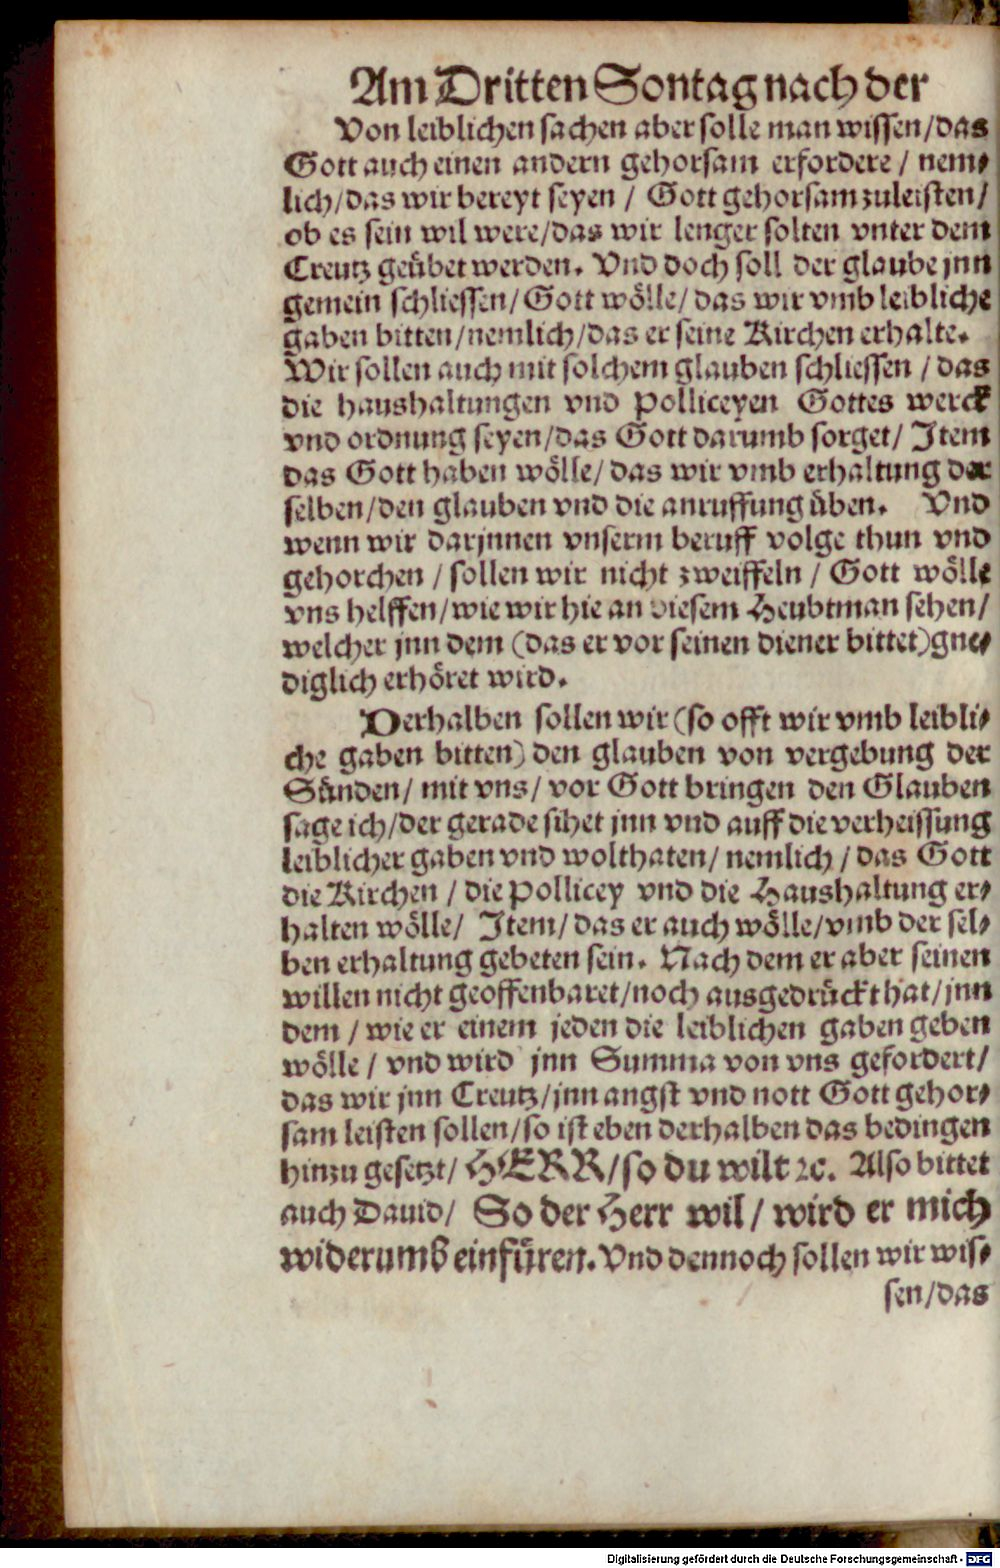 Am Dritten Sontag nach der
Von leiblichen sachen aber solle man wissen/das
Gott auch einen andern gehorsam erfordere / nem-
lich/das wir bereyt seyen / Gott gehorsam zuleisten/
ob es sein wil were/das wir lenger solten vnter dem
Creutz geübet werden. Vnd doch soll der glaube jnn
gemein schliessen/Gott wölle/das wir vmb leibliche
gaben bitten/nemlich/das er seine Kirchen erhalte.
Wir sollen auch mit solchem glauben schliessen / das
die haushaltungen vnd Polliceyen Gottes werck
vnd ordnung seyen/das Gott darumb sorget/ Item
das Gott haben wölle/das wir vmb erhaltung der
selben/den glauben vnd die anruffung üben. Vnd
wenn wir darjnnen vnserm beruff volge thun vnd
gehorchen / sollen wir nicht zweiffeln / Gott wölle
vns helffen/wie wir hie an diesem Heubtman sehen/
welcher jnn dem (das er vor seinen diener bittet)gne-
diglich erhöret wird.
Derhalben sollen wir (so offt wir vmb leibli-
che gaben bitten) den glauben von vergebung der
Sünden/ mit vns/ vor Gott bringen den Glauben
sage ich/der gerade sihet jnn vnd auff die verheissung
leiblicher gaben vnd wolthaten/ nemlich / das Gott
die Kirchen / die Pollicey vnd die Haushaltung er-
halten wölle/ Item/ das er auch wölle/vmb der sel-
ben erhaltung gebeten sein. Nach dem er aber seinen
willen nicht geoffenbaret/noch ausgedrückt hat/jnn
dem / wie er einem jeden die leiblichen gaben geben
wölle / vnd wird jnn Summa von vns gefordert/
das wir jnn Creutz/jnn angst vnd nott Gott gehor-
sam leisten sollen/so ist eben derhalben das bedingen
hinzu gesetzt/ HERR/so du wilt ꝛc. Also bittet
auch Dauid/ So der Herr wil/ wird er mich
widerumb einfüren. Vnd dennoch sollen wir wis-
sen/das
Digitalisierung gefördert durch die Deutsche Forschungsgemeinschaft - DFG